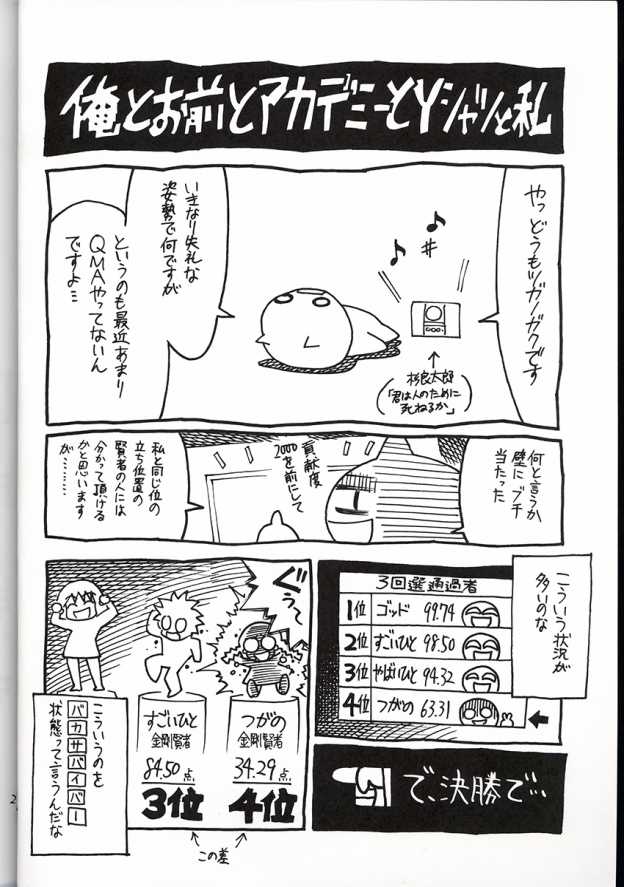 俺とお前とアカデミーとYシャツと私
やっどうもツガノガクです
杉良太郎
「君は人のために
死ねるか」
いきなり失礼な
姿勢で何ですが
というのも最近あまり
QMAやってないん
ですよ…
何と言うか
壁にブチ
当たった
貢献度
2000
を前にして
私と同じ位の
立ち位置の
賢者の人には
分かって頂ける
かと思います
が………
こういう状況が
多いのな
3回選通過者
1位 ゴッド 99.74
2位 すごいひと 98.50
3位 やばいひと 94.32
4位 つがの 63.31
で、決勝で…
ぐぅ〜
すごいひと
金剛賢者
84.50点
3位
つがの
金剛賢者
34.29点
4位
この差
こういうのを
バカサバイバー
状態って言うんだな
2